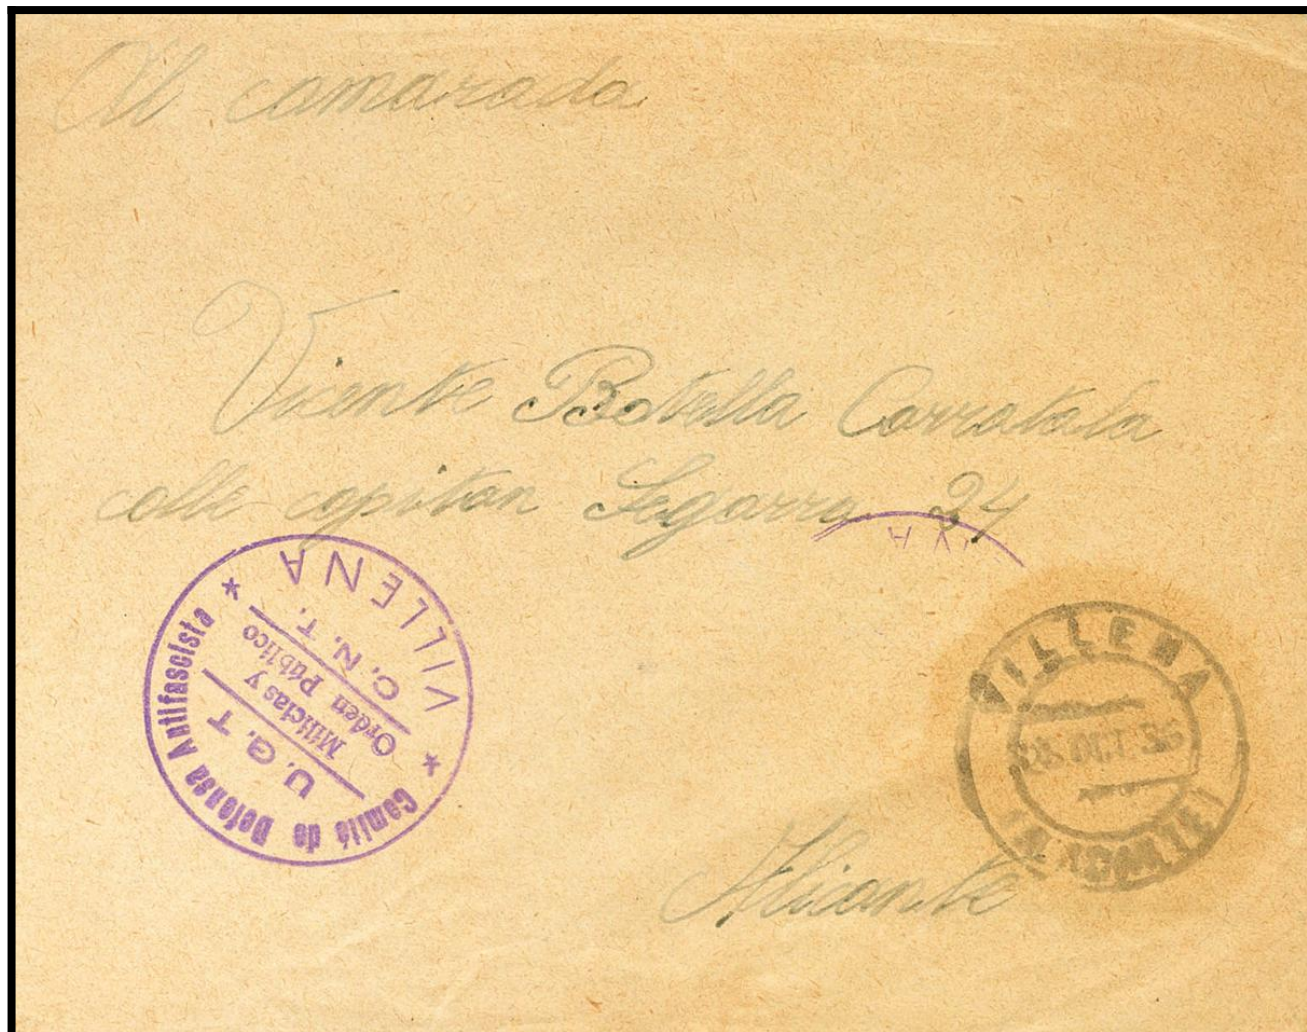 Al camarada
Vicente Botella Carratala
calle capitan Segarra 24
Alicante
Comité de Defensa Antifascista
U. G. T
Milicias y
Orden Público
C. N. T.
VILLENA
VILLENA
28 OCT 36
(ALICANTE)